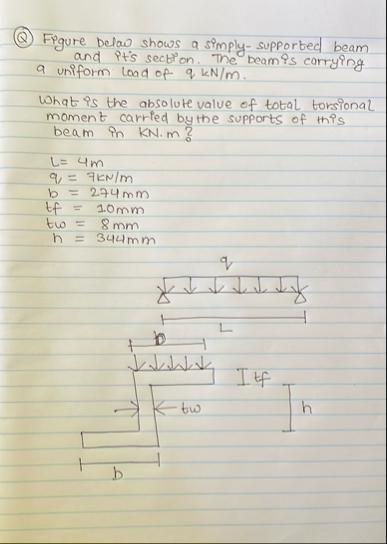 Q Figure below shows a simply-supported beam
and it's section. The beam is carrying
a uniform load of q kN/m.
What is the absolute value of total torsional
moment carried by the supports of this
beam in KN.m?
L= 4m
q = 7KN/m
b = 274mm
tf = 10mm
tw = 8mm
h = 344mm
q
L
b
tf
tw
h
b